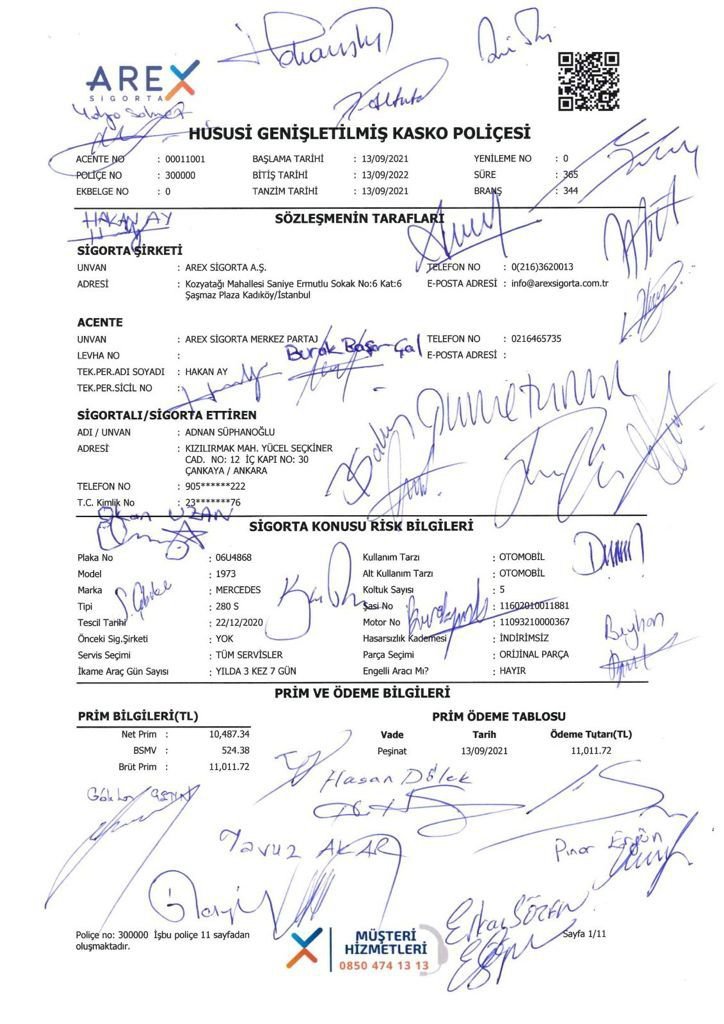 AREX
SIGORTA
HUSUSİ GENİŞLETİLMİŞ KASKO POLİÇESİ
ACENTE NO : 00011001 BAŞLAMA TARİHİ : 13/09/2021 YENİLEME NO : 0
POLİÇE NO : 300000 BİTİŞ TARİHİ : 13/09/2022 SÜRE : 365
EKBELGE NO : 0 TANZİM TARİHİ : 13/09/2021 BRANŞ : 344
HAKAN AY
SÖZLEŞMENİN TARAFLARI
SİGORTA ŞİRKETİ
UNVAN : AREX SİGORTA A.Ş. TELEFON NO : 0(216)3620013
ADRESİ : Kozyatağı Mahallesi Saniye Ermutlu Sokak No:6 Kat:6 E-POSTA ADRESİ : info@arexsigorta.com.tr
Şaşmaz Plaza Kadıköy/İstanbul
ACENTE
UNVAN : AREX SİGORTA MERKEZ PARTAJ TELEFON NO : 0216465735
Burak Başar Çal
LEVHA NO : E-POSTA ADRESİ :
TEK.PER.ADI SOYADI : HAKAN AY
TEK.PER.SİCİL NO :
SİGORTALI/SİGORTA ETTİREN
ADI / UNVAN : ADNAN SÜPHANOĞLU
ADRESİ : KIZILIRMAK MAH. YÜCEL SEÇKİNER
CAD. NO: 12 İÇ KAPI NO: 30
ÇANKAYA / ANKARA
TELEFON NO : 905******222
T.C. Kimlik No : 23*******76
Okan UZAN
SİGORTA KONUSU RİSK BİLGİLERİ
Plaka No : 06U4868 Kullanım Tarzı : OTOMOBİL
Model : 1973 Alt Kullanım Tarzı : OTOMOBİL
Marka : MERCEDES Koltuk Sayısı : 5
Tipi : 280 S Şasi No : 11602010011881
Tescil Tarihi : 22/12/2020 Motor No : 11093210000367
Beyhan
Önceki Sig.Şirketi : YOK Hasarsızlık Kademesi : İNDİRİMSİZ
Servis Seçimi : TÜM SERVİSLER Parça Seçimi : ORİJİNAL PARÇA
İkame Araç Gün Sayısı : YILDA 3 KEZ 7 GÜN Engelli Aracı Mı? : HAYIR
PRİM VE ÖDEME BİLGİLERİ
PRİM BİLGİLERİ(TL) PRİM ÖDEME TABLOSU
Net Prim : 10,487.34 Vade Tarih Ödeme Tutarı(TL)
BSMV : 524.38 Peşinat 13/09/2021 11,011.72
Brüt Prim : 11,011.72
Hasan Dölek
Yavuz AKAR
Pınar Ergün
Erkay SÖZEN
Poliçe no: 300000 İşbu poliçe 11 sayfadan
oluşmaktadır.
MÜŞTERİ
HİZMETLERİ
0850 474 13 13
Sayfa 1/11